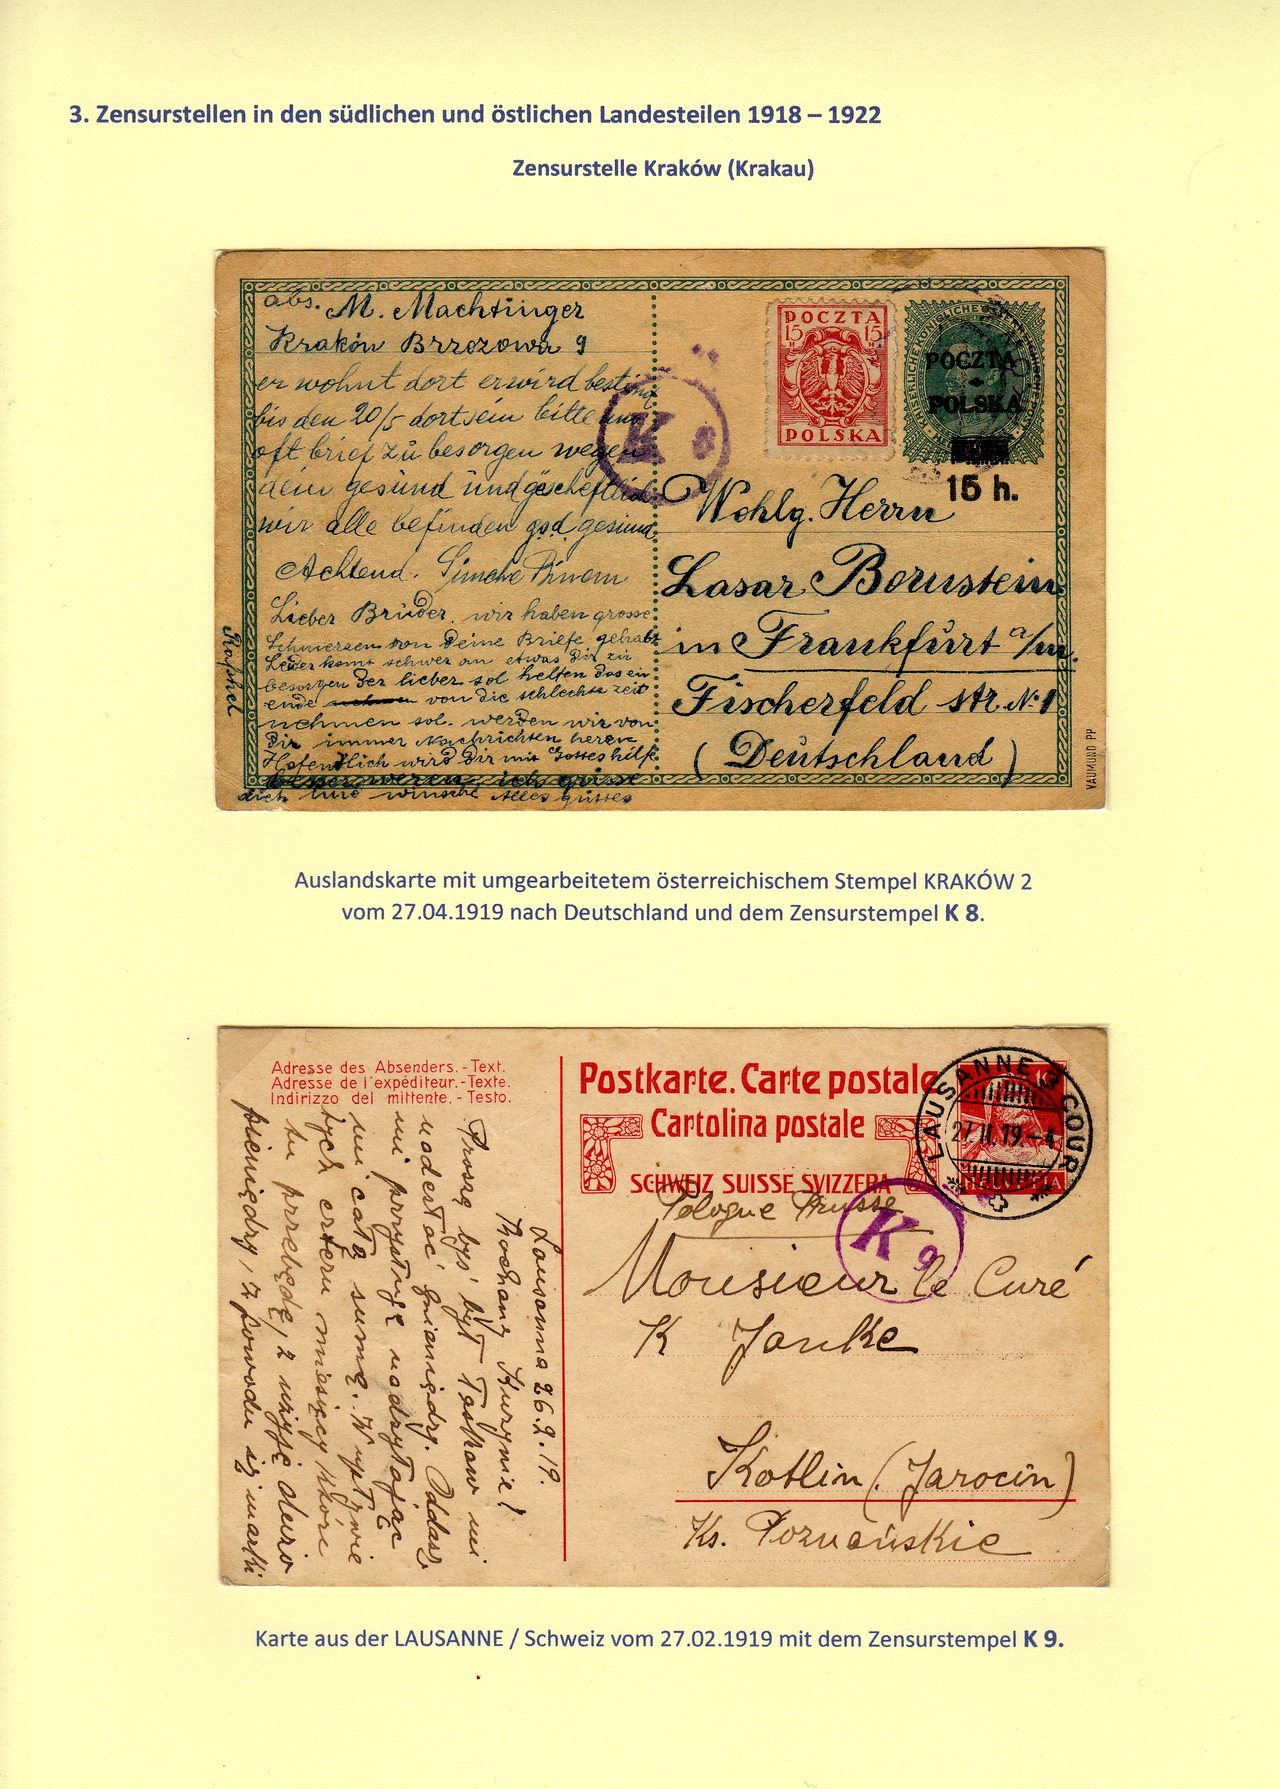 3. Zensurstellen in den südlichen und östlichen Landesteilen 1918 – 1922
Zensurstelle Kraków (Krakau)
abs. M. Machtinger
Kraków Brzozowa 9
er wohnt dort er wird besting
bis den 20/5 dort sein bitte uns
oft brief zu besorgen wegen
dein gesund und gescheftlich
wir alle befinden g.s.d. gesund
Achtend. Simche Binem
Lieber Bruder. wir haben grosse
Schmerzen von Deine Briefe gehabt
Leider komt schwer an etwas Dir zu
besorgen Der lieber sol helfen das ein
ende von die schlechte zeit
nehmen sol. werden wir von
Dir immer Nachrichten heren
Hofendlich wird Dir mit Gottes hilfe
besser weren, ich grisse
dich und winsche Alles gutes
Raphel
K 8
POCZTA
15 15
H H
POLSKA
POCZTA
POLSKA
15 h.
Wohlg. Herrn
Lasar Bornstein
in Frankfurt a/m.
Fischerfeld str. № 1
(Deutschland)
VADMUD80 PP
Auslandskarte mit umgearbeitetem österreichischem Stempel KRAKÓW 2
vom 27.04.1919 nach Deutschland und dem Zensurstempel K 8.
Adresse des Absenders. - Text.
Adresse de l'expéditeur. - Texte.
Indirizzo del mittente. - Testo.
Postkarte. Carte postale
Cartolina postale
SCHWEIZ SUISSE SVIZZERA
LAUSANNE COUR
27.II.19.–4
K 9
Pologne Prusse
Monsieur le Curé
K Janke
Kotlin (Jarocin)
Ks. Poznańskie
Lausanna 26.2.19.
Kochany Kuzynie!
Proszę byś był łaskaw mi
nadesłać pieniędzy. Oddasz
mi przysługę nadsyłając
mi całą sumę. W upływie
tych czterech miesięcy które
tu przebędę, z użyję dużo
pieniędzy, z powodu iż marki
Karte aus der LAUSANNE / Schweiz vom 27.02.1919 mit dem Zensurstempel K 9.